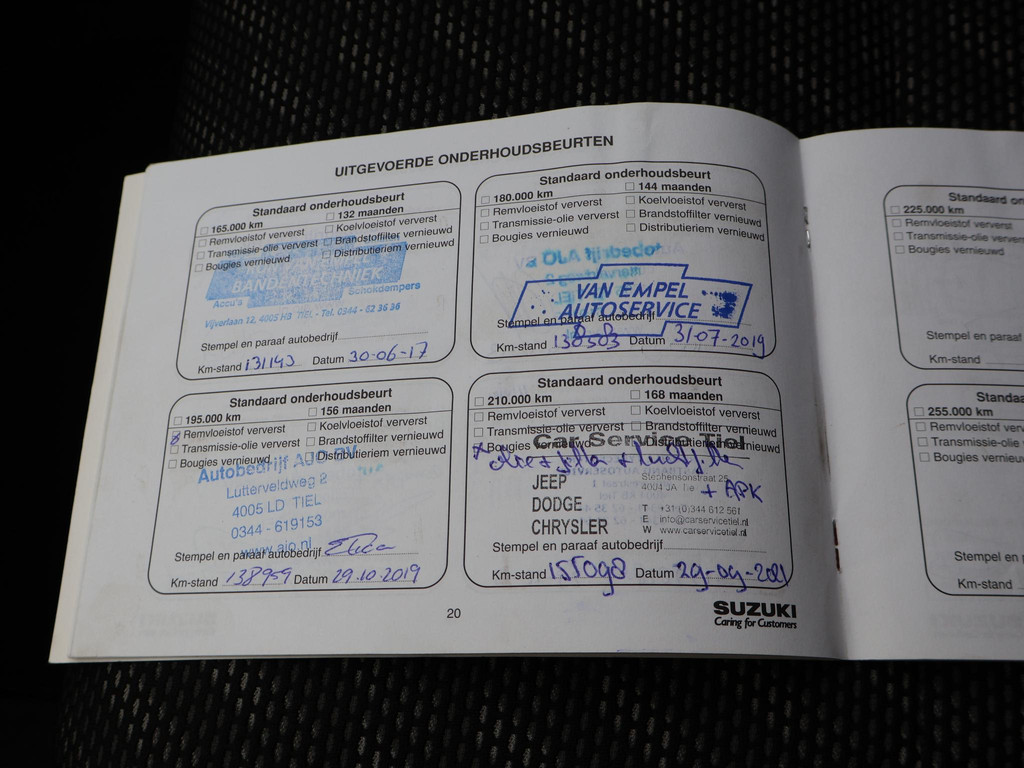 UITGEVOERDE ONDERHOUDSBEURTEN
Standaard onderhoudsbeurt
165.000 km 132 maanden
Remvloeistof ververst Koelvloeistof ververst
Transmissie-olie ververst Brandstoffilter vernieuwd
Bougies vernieuwd Distributieriem vernieuwd
BANDENTECHNIEK
Accu's Schokdempers
Vijverlaan 12, 4005 HB TIEL - Tel. 0344 - 62 36 36
Stempel en paraaf autobedrijf
Km-stand 131143 Datum 30-06-17
Standaard onderhoudsbeurt
180.000 km 144 maanden
Remvloeistof ververst Koelvloeistof ververst
Transmissie-olie ververst Brandstoffilter vernieuwd
Bougies vernieuwd Distributieriem vernieuwd
VAN EMPEL
AUTOSERVICE
Stempel en paraaf autobedrijf
Km-stand 130503 Datum 31-07-2019
Standaard onderhoudsbeurt
195.000 km 156 maanden
Remvloeistof ververst Koelvloeistof ververst
Transmissie-olie ververst Brandstoffilter vernieuwd
Bougies vernieuwd Distributieriem vernieuwd
Autobedrijf
Lutterveldweg 2
4005 LD TIEL
0344 - 619153
www.ajo.nl
Stempel en paraaf autobedrijf
Km-stand 138959 Datum 29.10.2019
Standaard onderhoudsbeurt
210.000 km 168 maanden
Remvloeistof ververst Koelvloeistof ververst
Transmissie-olie ververst Brandstoffilter vernieuwd
Bougies vernieuwd Distributieriem vernieuwd
Car Service Tiel
JEEP Stephensonstraat 25
4004 JA + APK
DODGE T +31 (0)344 612 561
E info@carservicetiel.nl
CHRYSLER W www.carservicetiel.nl
Stempel en paraaf autobedrijf
Km-stand 155098 Datum 29-09-2021
20
SUZUKI
Caring for Customers
Standaard
225.000 km
Remvloeistof ververst
Transmissie-olie ververst
Bougies vernieuwd
Stempel en paraaf
Km-stand
255.000 km
Transmissie-olie
Bougies vernieuwd
Stempel en
Km-stand